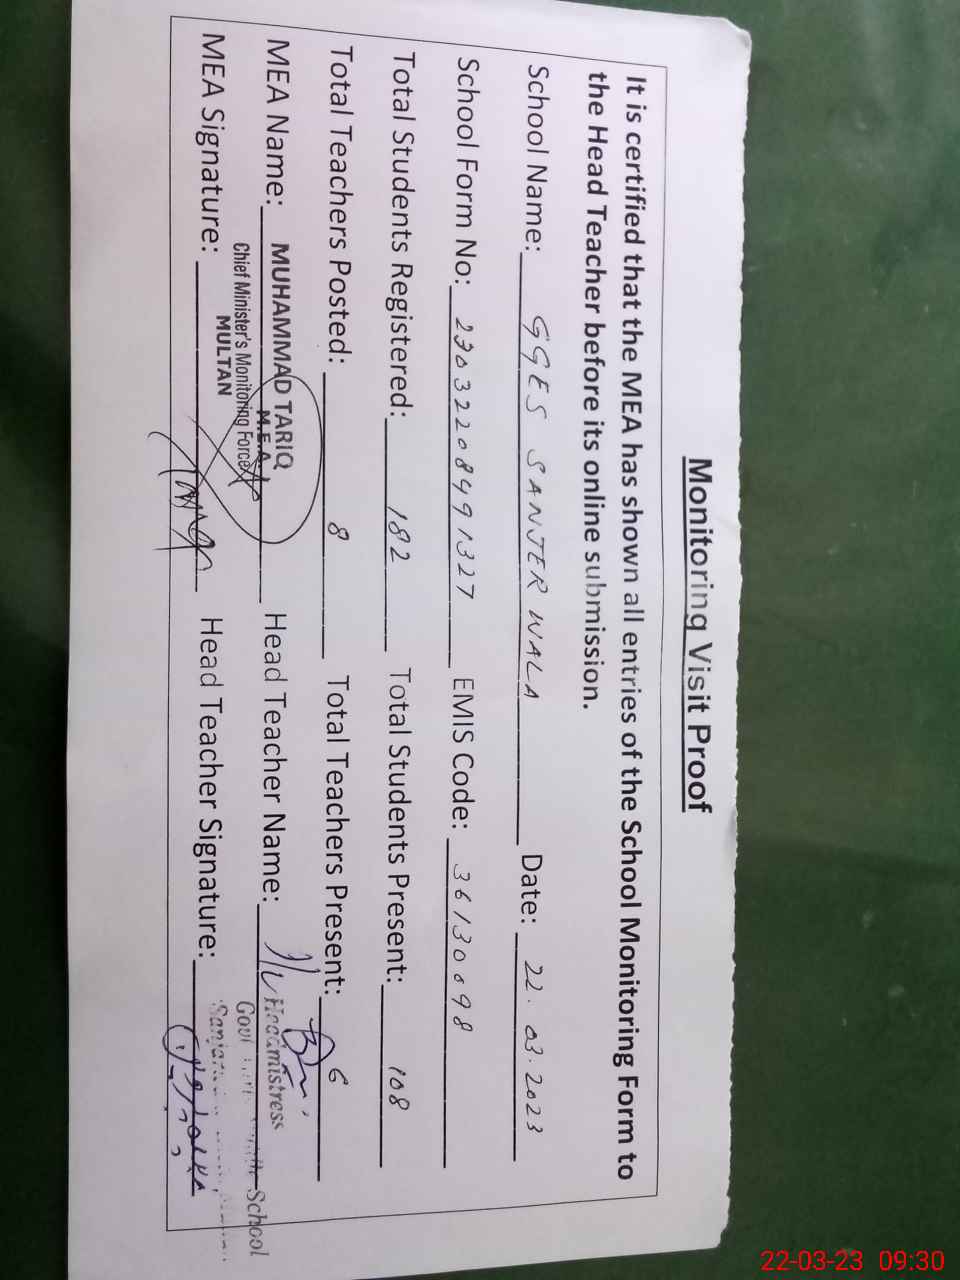 Monitoring Visit Proof
It is certified that the MEA has shown all entries of the School Monitoring Form to
the Head Teacher before its online submission.
School Name: GGES SANJER WALA Date: 22.03.2023
School Form No: 230322084991327 EMIS Code: 36130098
Total Students Registered: 182 Total Students Present: 108
Total Teachers Posted: 8 Total Teachers Present: 6
MEA Name: MUHAMMAD TARIQ Head Teacher Name:
M.E.A.
Headmistress
Chief Minister's Monitoring Force
Govt School
MULTAN
MEA Signature: Head Teacher Signature:
22-03-23 09:30